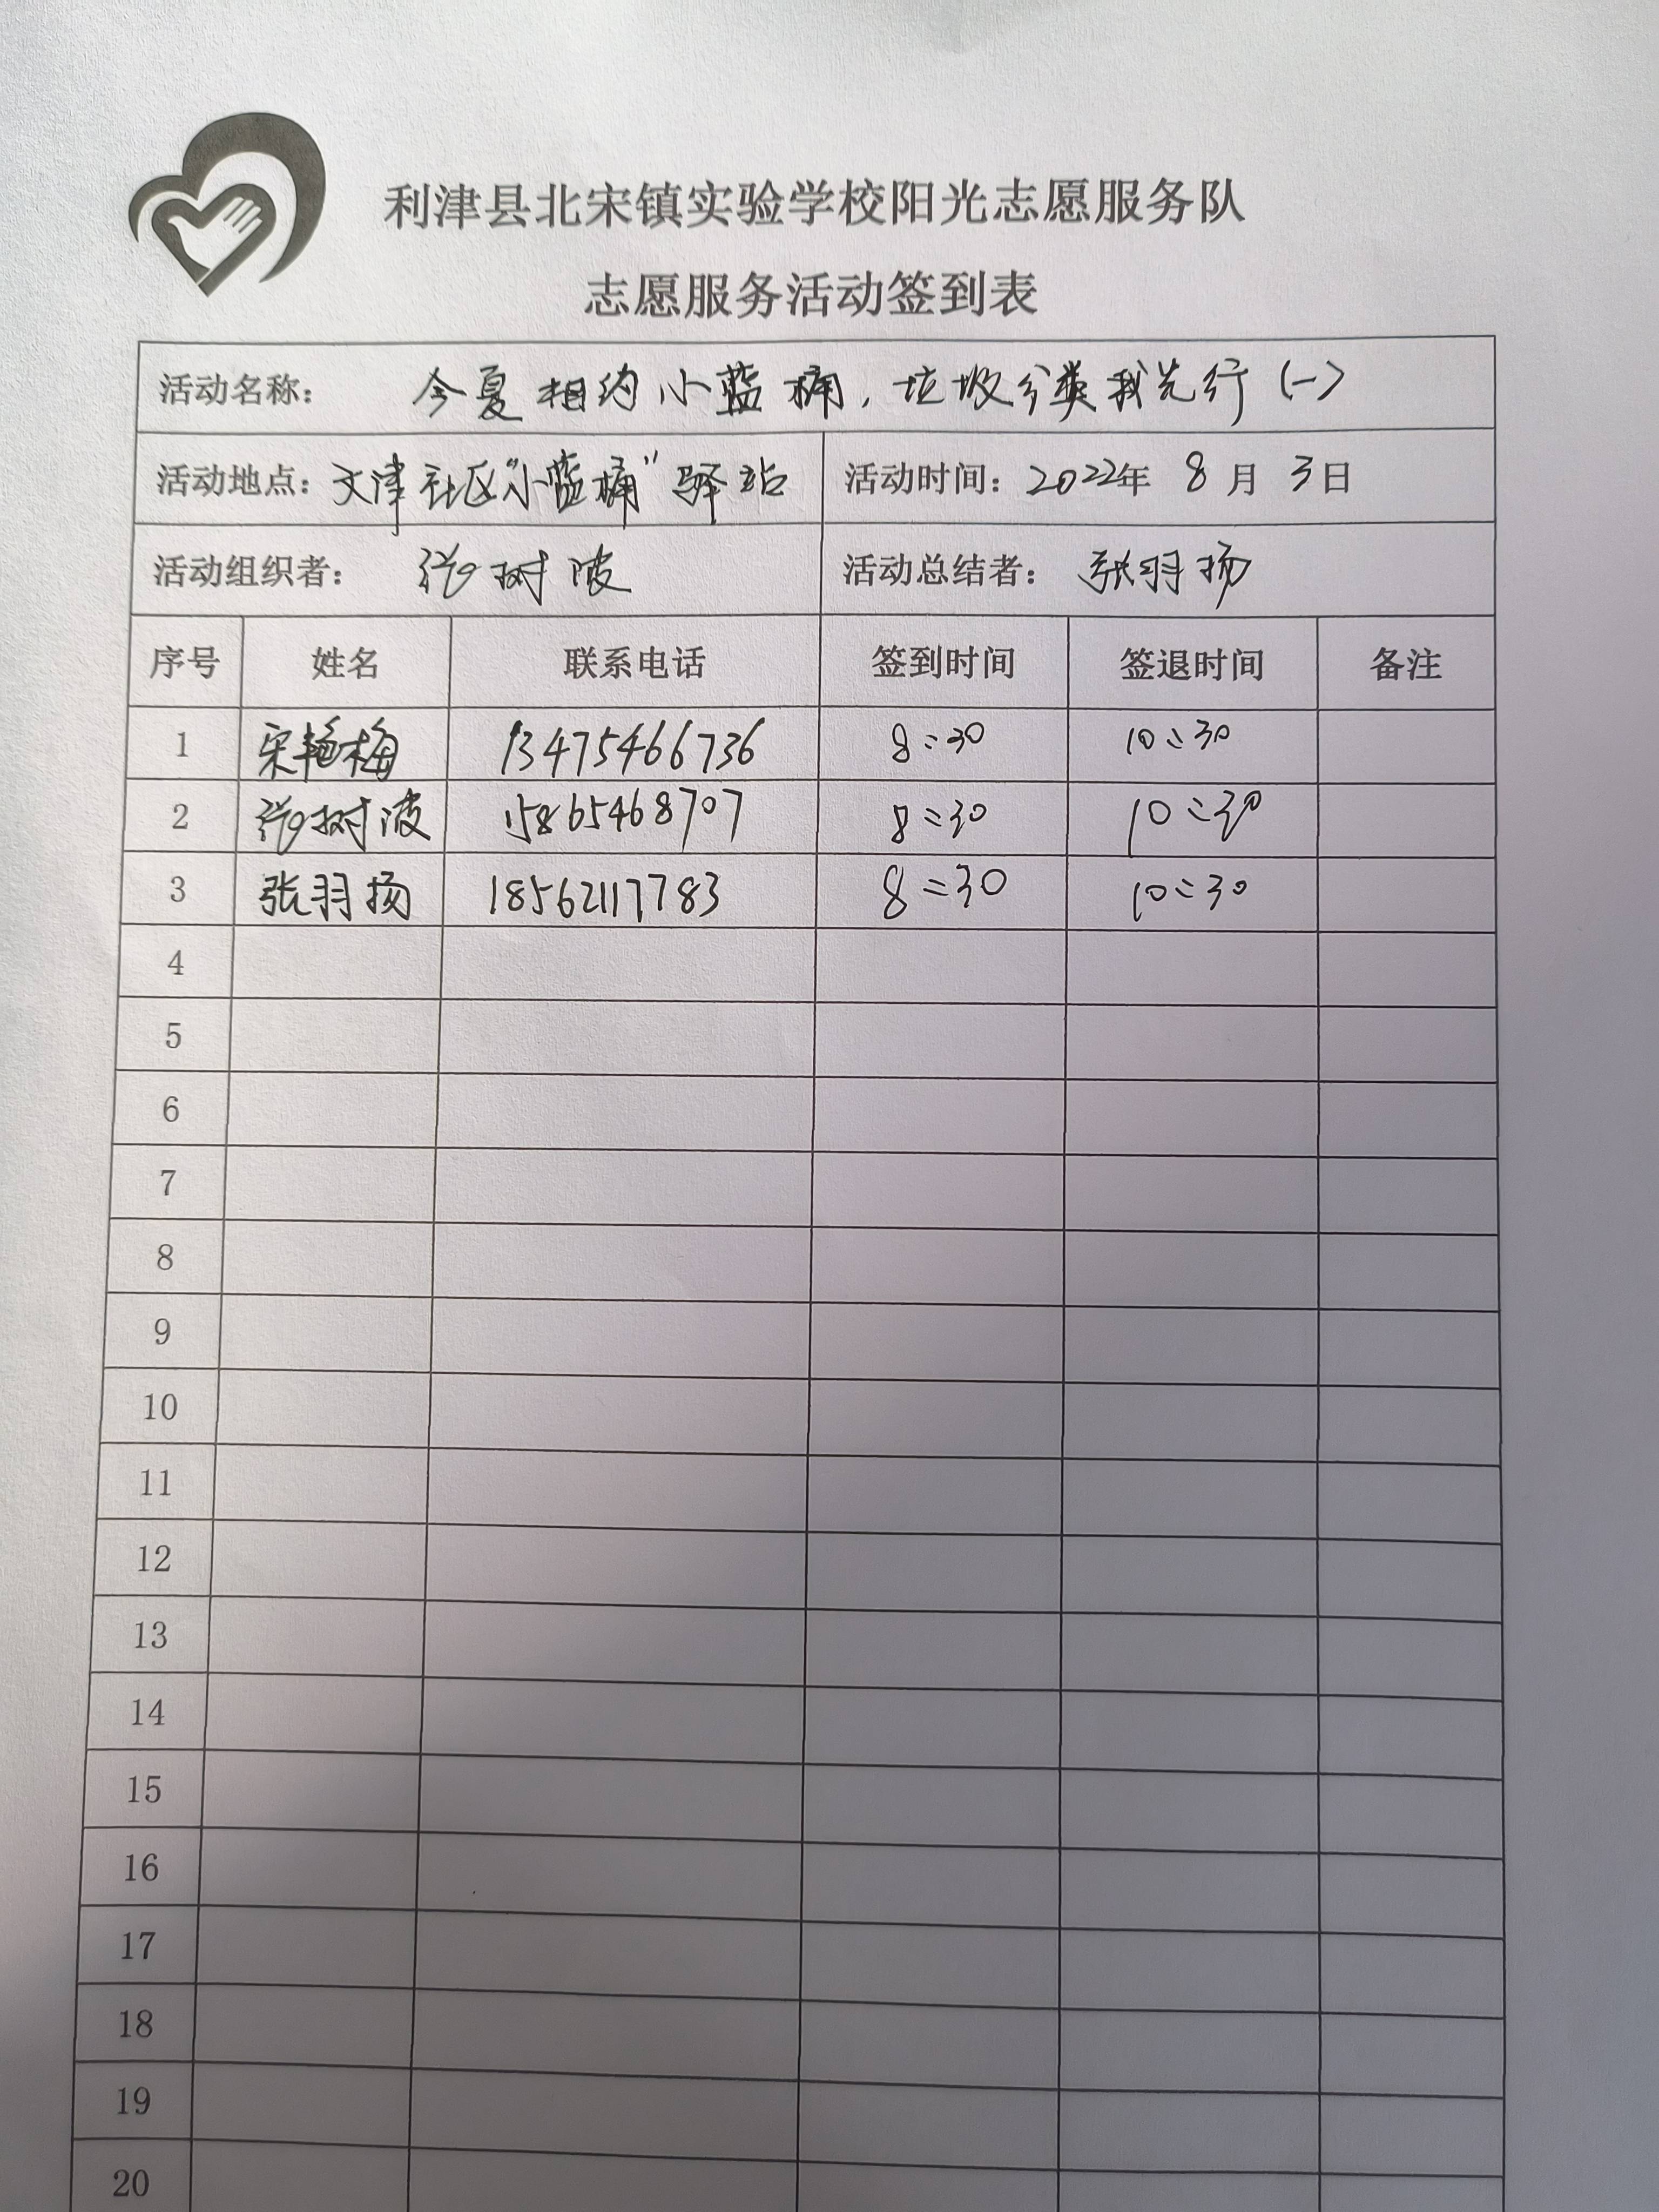 利津县北宋镇实验学校阳光志愿服务队
志愿服务活动签到表
活动名称： 今夏相约小蓝桶，垃圾分类我先行（一）
活动地点：文津社区“小蓝桶”驿站 活动时间：2022年 8月 3日
活动组织者： 树波 活动总结者： 张羽扬
序号 姓名 联系电话 签到时间 签退时间 备注
1 宋艳梅 13475466736 8:30 10:30
2 树波 15865468707 8:30 10:30
3 张羽扬 18562117783 8:30 10:30
4
5
6
7
8
9
10
11
12
13
14
15
16
17
18
19
20